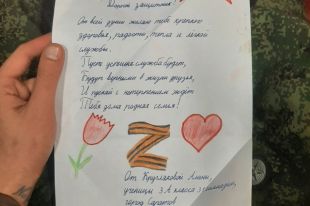 Дорогой защитник!
От всей души желаю тебе крепкого
здоровья, радости, тепла и легкой
службы.
Пусть успешна служба будет,
Будут верными в жизни друзья,
И пускай с нетерпением ждёт
Тебя дома родная семья!
Z
От Кругляковой Алины,
ученицы 3 А класса
город Саратов